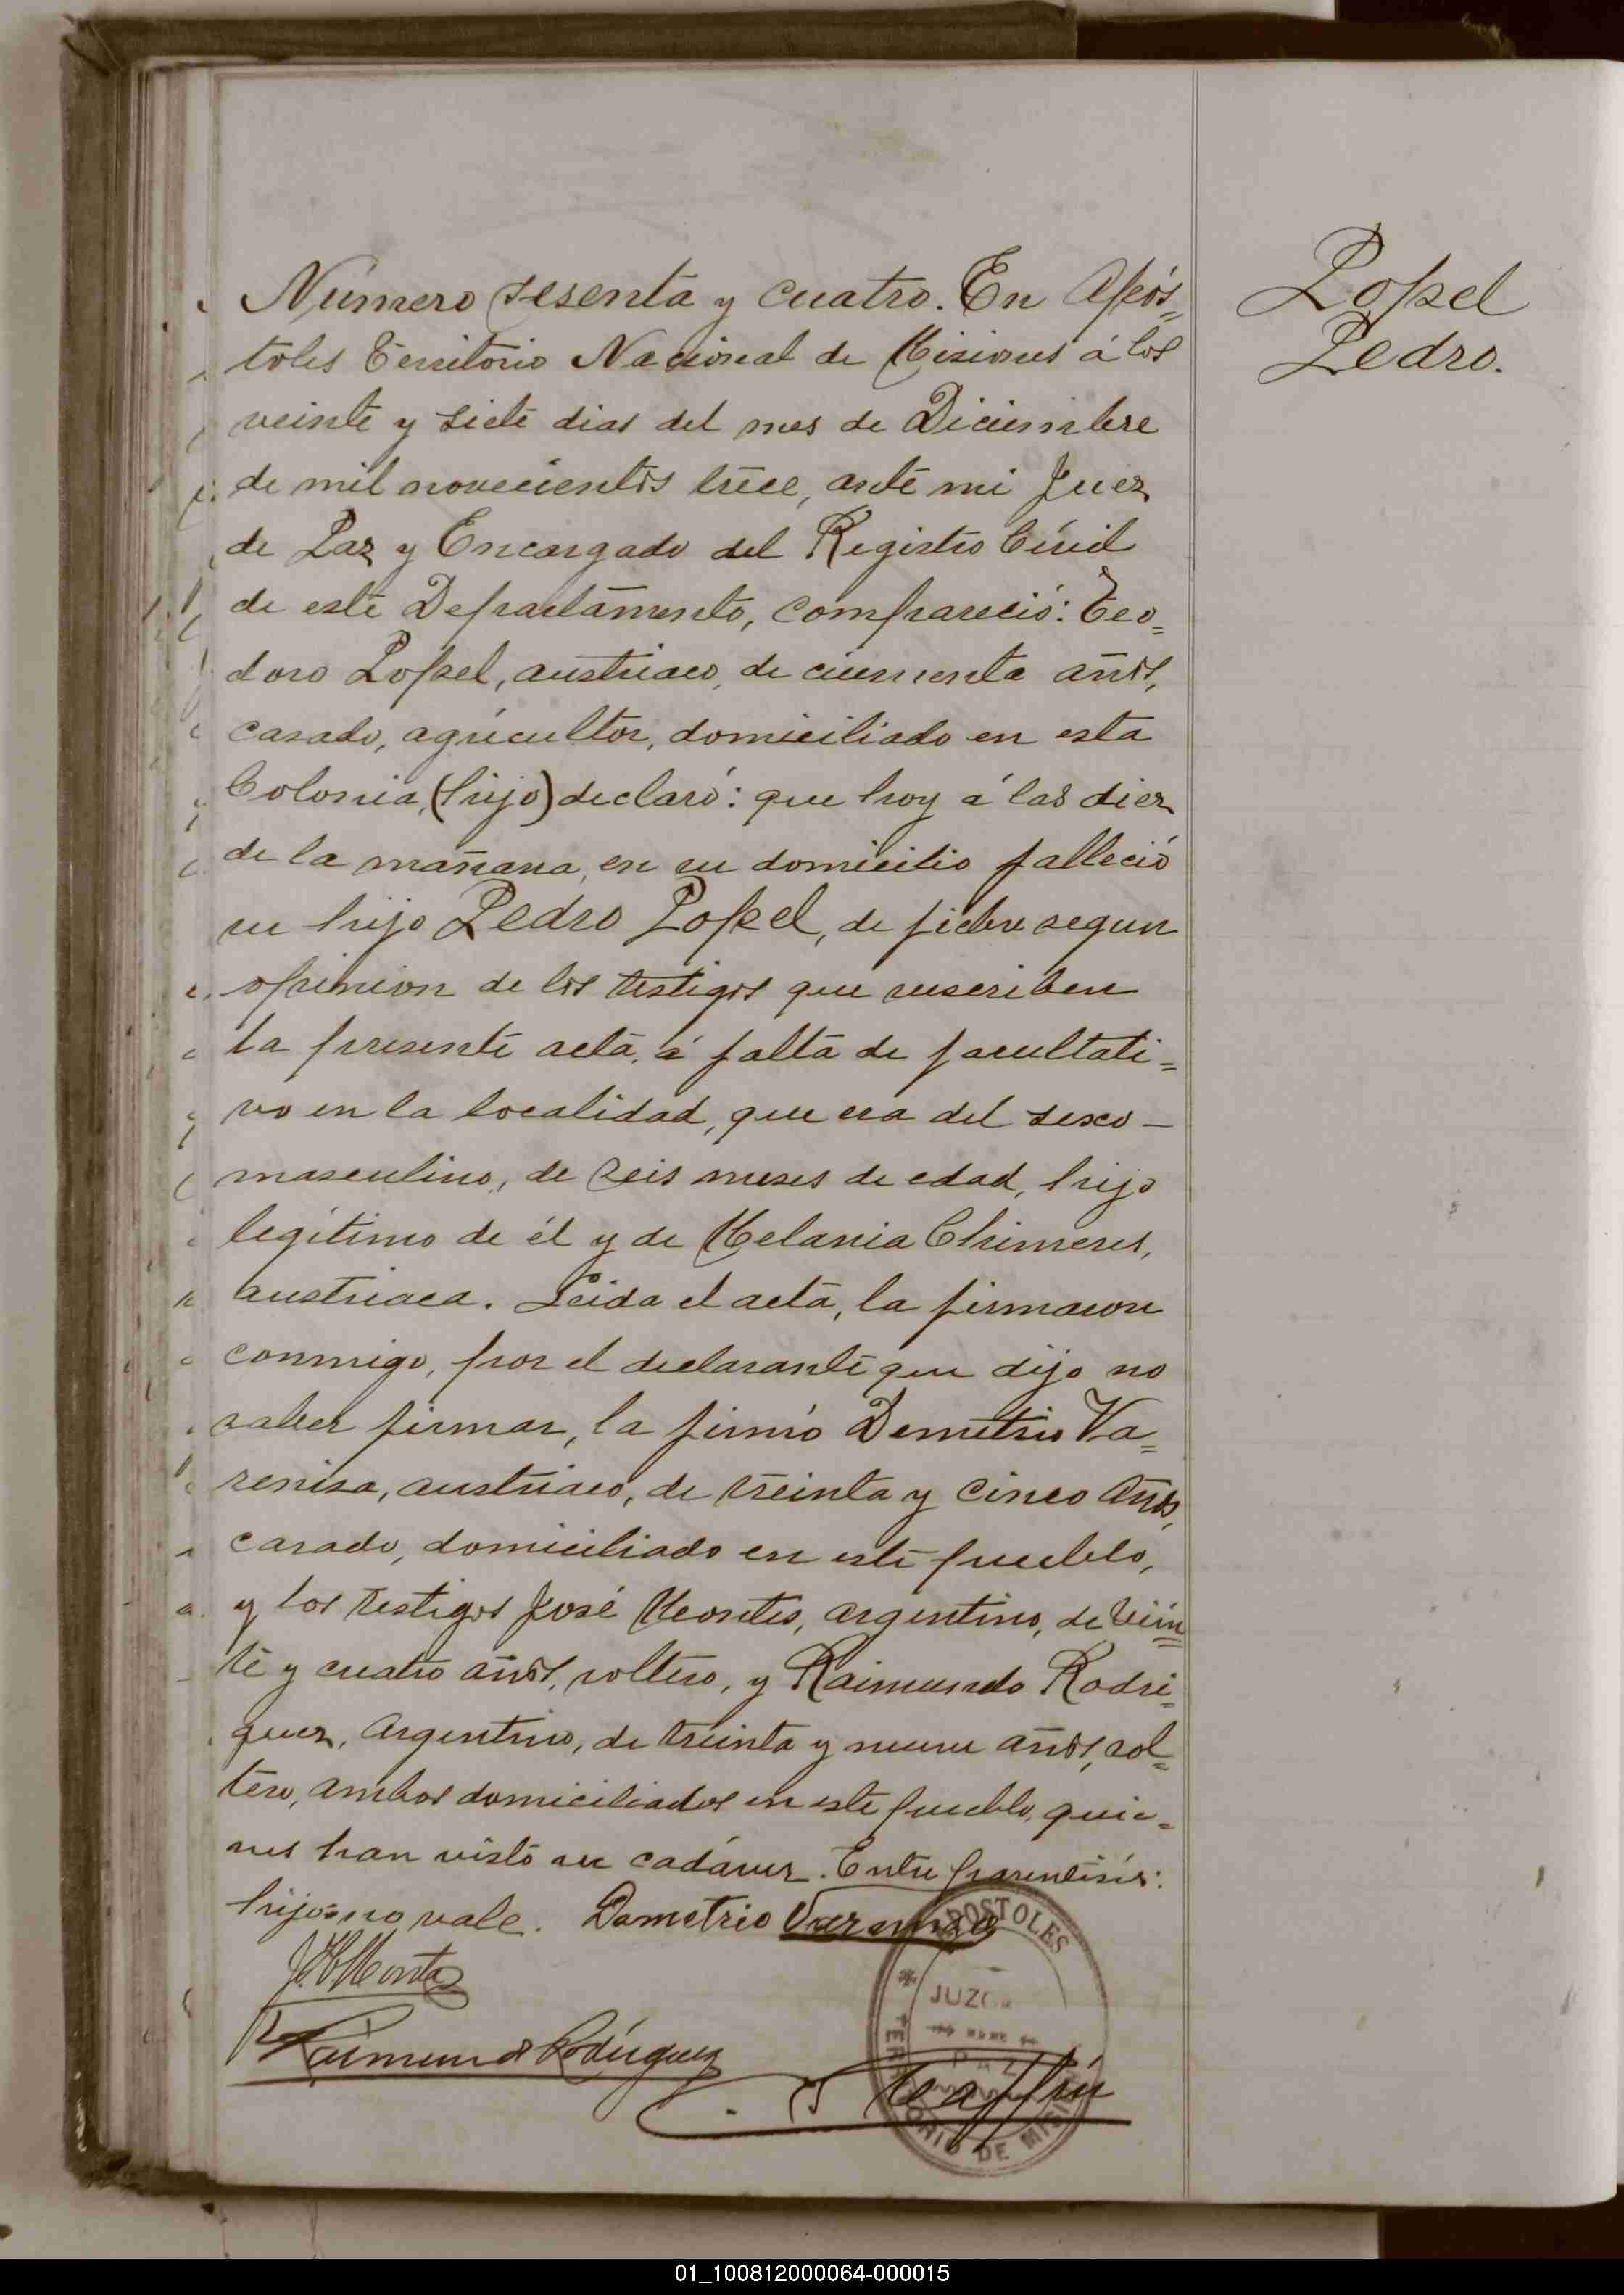 Popel
Pedro.
Número sesenta y cuatro. En Após=
toles Territorio Nacional de Misiones á los
veinte y siete dias del mes de Diciembre
de mil novecientos trece, ante mi Juez
de Paz y Encargado del Registro Civil
de este Departamento, compareció: Teo=
doro Popel, austriaco, de cincuenta años,
casado, agricultor, domiciliado en esta
Colonia, (hijo) declaró: que hoy á las diez
de la mañana, en su domicilio falleció
su hijo Pedro Popel, de fiebre segun
opinion de los testigos que suscriben
la presente acta, á falta de facultati=
vo en la localidad, que era del sexo -
masculino, de seis meses de edad, hijo
legítimo de él y de Melania Chimeres,
austriaca. Leida el acta, la firmaron
conmigo, por el declarante que dijo no
saber firmar, la firmó Demetrio Va=
renisa, austriaco, de treinta y cinco años,
casado, domiciliado en este pueblo,
y los testigos José Montes, argentino, de vein=
te y cuatro años, soltero, y Raimundo Rodri=
guez, argentino, de treinta y nueve años, sol=
tero, ambos domiciliados en este pueblo, quie=
nes han visto su cadáver. Entre parentisis:
hijo=no vale. Demetrio
Raimundo Rodríguez
APOSTOLES
JUZG
PAZ
TERRITORIO DE MISI
01_100812000064-000015